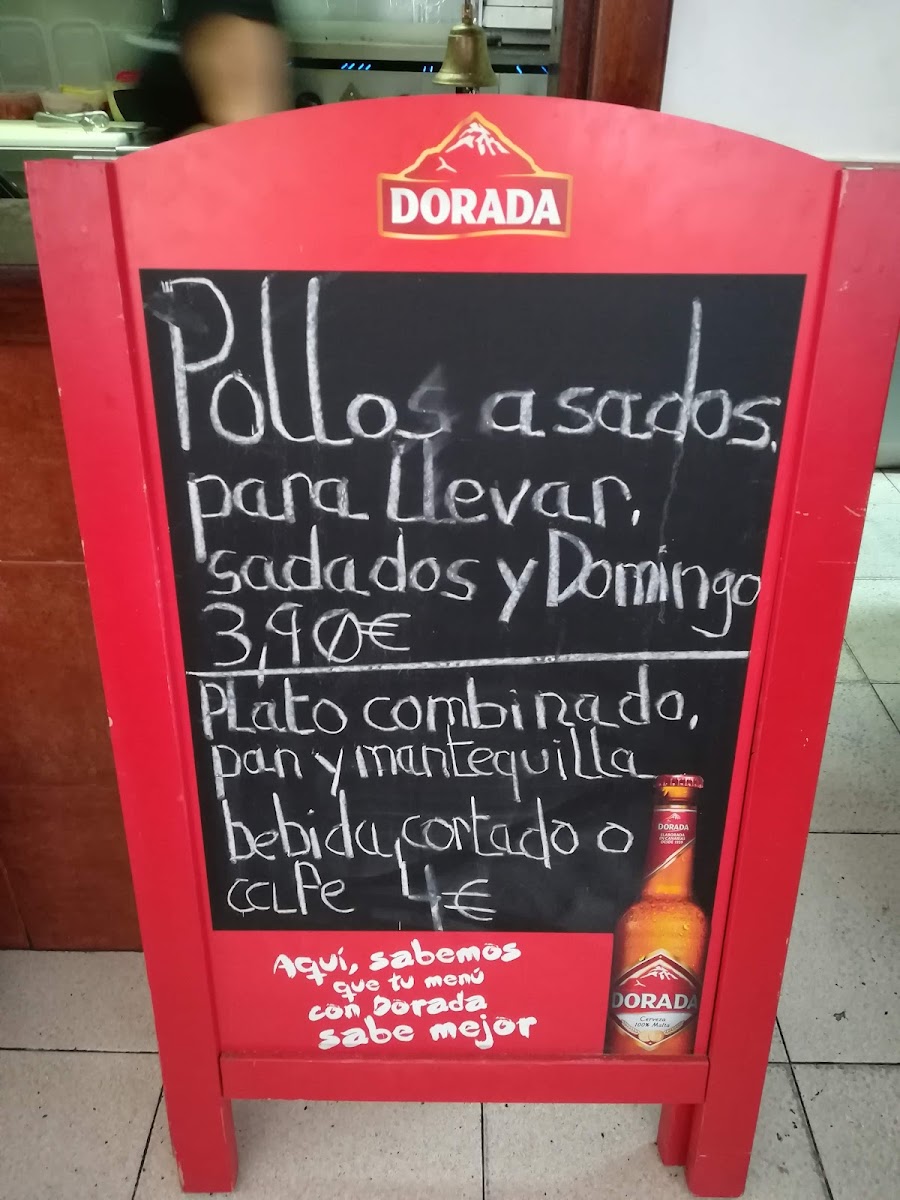 DORADA
Pollos asados.
para llevar.
sadados y Domingo
3,90€
Plato combinado.
pan y mantequilla
bebida, cortado o
cafe 4€
DORADA
ELABORADA
EN CANARIAS
DESDE 1939
DORADA
Cerveza
100% Malta
Aquí, sabemos
que tu menú
con Dorada
sabe mejor